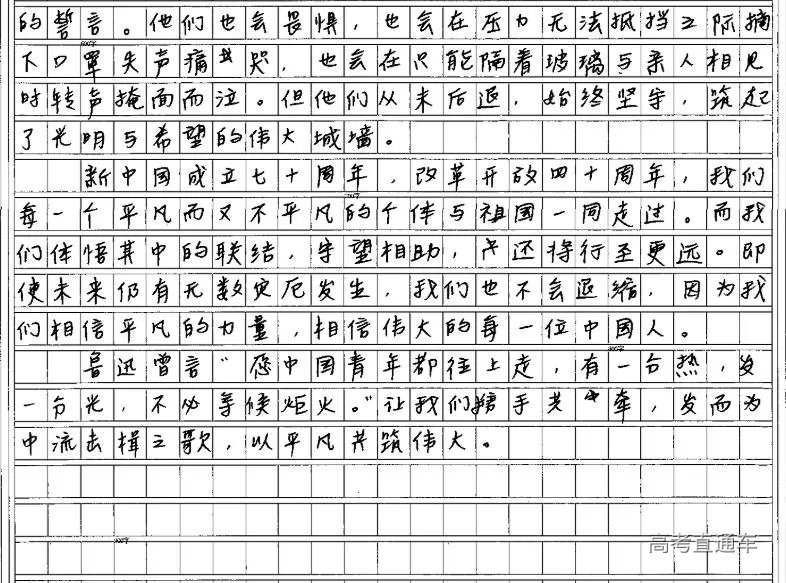 的誓言。他们也会畏惧，也会在压力无法抵挡之际摘
下口罩失声痛哭，也会在只能隔着玻璃与亲人相见
时转声掩面而泣。但他们从未后退，始终坚守，筑起
了光明与希望的伟大城墙。
新中国成立七十周年，改革开放四十周年，我们
每一个平凡而又不平凡的个体与祖国一同走过。而我
们体悟其中的联结，守望相助，还将行至更远。即
使未来仍有无数灾厄发生，我们也不会退缩，因为我
们相信平凡的力量，相信伟大的每一位中国人。
鲁迅曾言“愿中国青年都往上走，有一分热，发
一分光，不必等候炬火。”让我们携手共牵，发而为
中流击楫之歌，以平凡共筑伟大。
高考直通车